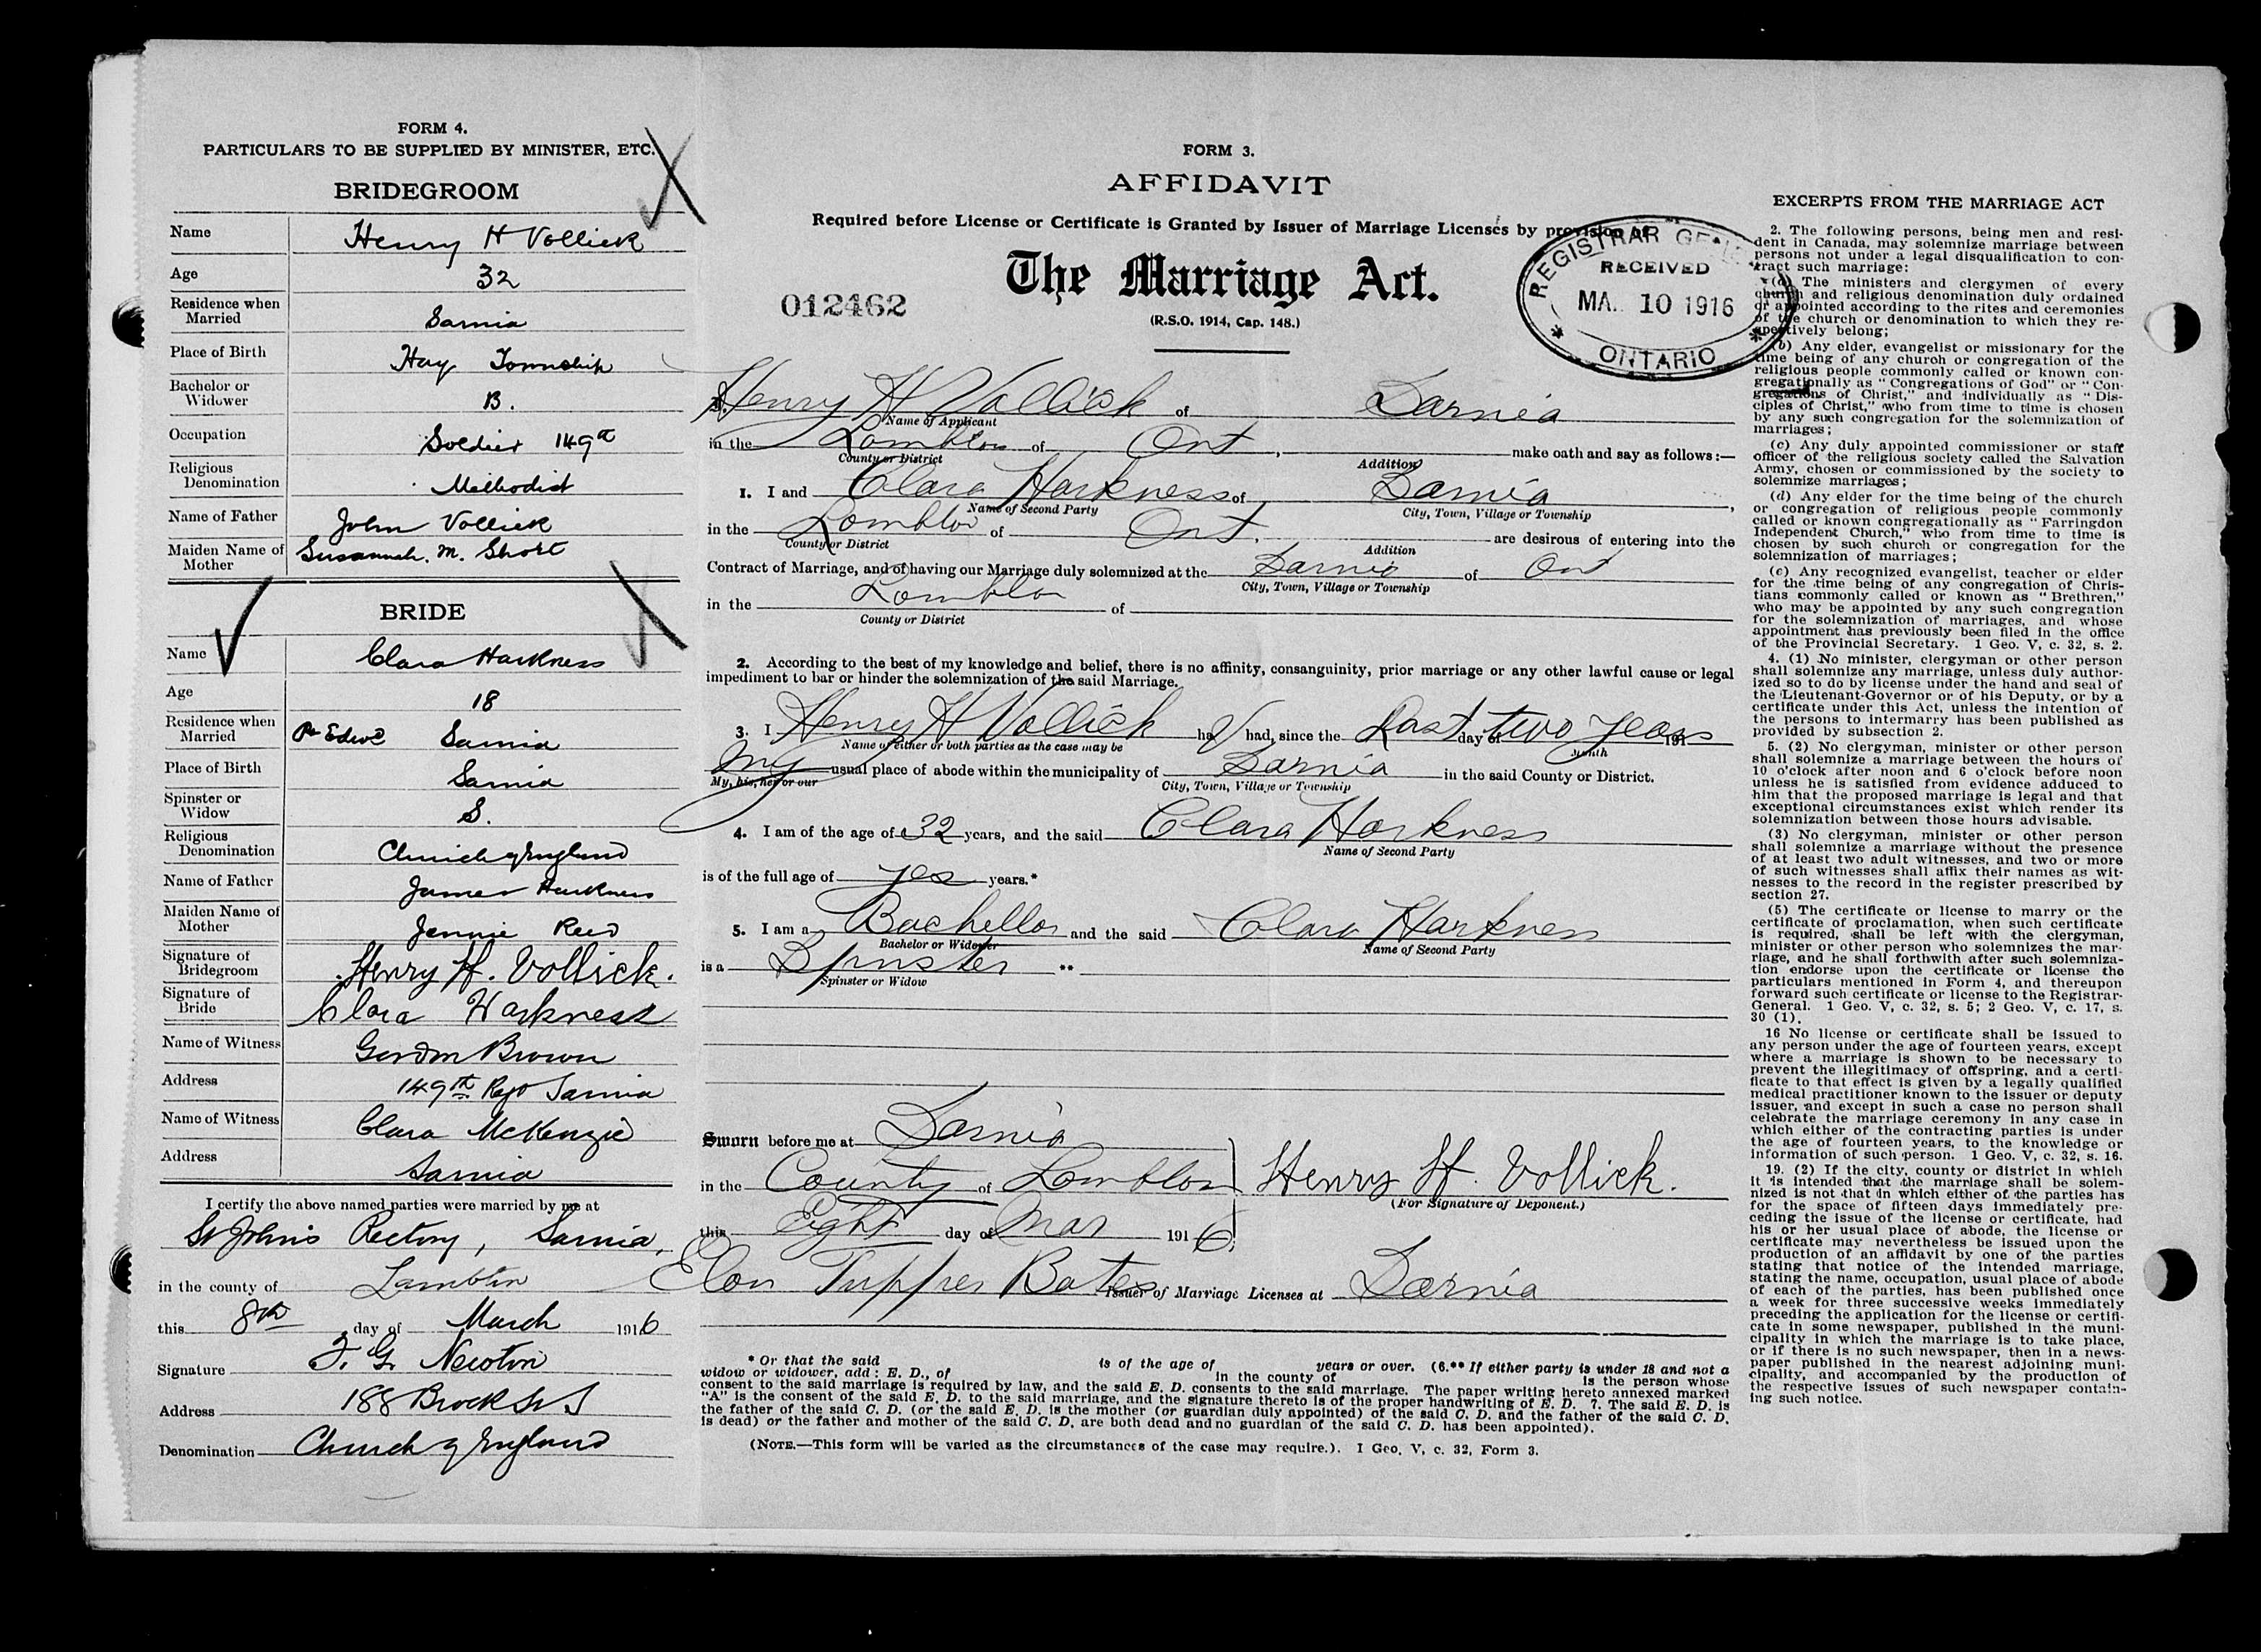 FORM 4.
PARTICULARS TO BE SUPPLIED BY MINISTER, ETC.
BRIDEGROOM
Name Henry H Vollick
Age 32
Residence when Married Sarnia
Place of Birth Hay Township
Bachelor or Widower B.
Occupation Soldier 149th
Religious Denomination Methodist
Name of Father John Vollick
Maiden Name of Mother Susannah. M. Short
BRIDE
Name Clara Harkness
Age 18
Residence when Married Pt Edwd Sarnia
Place of Birth Sarnia
Spinster or Widow S.
Religious Denomination Church of England
Name of Father James Harkness
Maiden Name of Mother Jennie Reed
Signature of Bridegroom Henry H. Vollick.
Signature of Bride Clara Harkness
Name of Witness Gordon Brown
Address 149th Regt Sarnia
Name of Witness Clara McKenzie
Address Sarnia
I certify the above named parties were married by me at
St John's Rectory, Sarnia,
in the county of Lambton
this 8th day of March 1916
Signature F. G. Newton
Address 188 Brock St S
Denomination Church of England
FORM 3.
AFFIDAVIT
Required before License or Certificate is Granted by Issuer of Marriage Licenses by provision of
The Marriage Act.
012462
(R.S.O. 1914, Cap. 148.)
REGISTRAR GENE
RECEIVED
MA. 10 1916
* ONTARIO *
I. Henry H Vollick of Sarnia
Name of Applicant
in the Lambton of Ont, make oath and say as follows:—
County or District Addition
1. I and Clara Harkness of Sarnia,
Name of Second Party City, Town, Village or Township
in the Lambton of Ont. are desirous of entering into the
County or District Addition
Contract of Marriage, and of having our Marriage duly solemnized at the Sarnia of Ont
City, Town, Village or Township
in the Lambton of
County or District
2. According to the best of my knowledge and belief, there is no affinity, consanguinity, prior marriage or any other lawful cause or legal
impediment to bar or hinder the solemnization of the said Marriage.
3. I Henry H Vollick ha V had, since the Last day of two years 191
Name of either or both parties as the case may be month
My usual place of abode within the municipality of Sarnia in the said County or District.
My, his, her or our City, Town, Village or Township
4. I am of the age of 32 years, and the said Clara Harkness
Name of Second Party
is of the full age of yes years.*
5. I am a Bachellor and the said Clara Harkness
Bachelor or Widower Name of Second Party
is a Spinster **
Spinster or Widow
Sworn before me at Sarnia
in the County of Lambton Henry H. Vollick.
(For Signature of Deponent.)
this Eight day of Mar 1916.
Elon Tupper Bates Issuer of Marriage Licenses at Sarnia
* Or that the said is of the age of years or over. (6.** If either party is under 18 and not a
widow or widower, add: E. D., of in the county of is the person whose
consent to the said marriage is required by law, and the said E. D. consents to the said marriage. The paper writing hereto annexed marked
"A" is the consent of the said E. D. to the said marriage, and the signature thereto is of the proper handwriting of E. D. 7. The said E. D. is
the father of the said C. D. (or the said E. D. is the mother (or guardian duly appointed) of the said C. D. and the father of the said C. D.
is dead) or the father and mother of the said C. D. are both dead and no guardian of the said C. D. has been appointed).
(NOTE.—This form will be varied as the circumstances of the case may require.). I Geo. V, c. 32, Form 3.
EXCERPTS FROM THE MARRIAGE ACT
2. The following persons, being men and resi-
dent in Canada, may solemnize marriage between
persons not under a legal disqualification to con-
tract such marriage:
(a) The ministers and clergymen of every
church and religious denomination duly ordained
or appointed according to the rites and ceremonies
of the church or denomination to which they re-
spectively belong;
(b) Any elder, evangelist or missionary for the
time being of any church or congregation of the
religious people commonly called or known con-
gregationally as "Congregations of God" or "Con-
gregations of Christ," and individually as "Dis-
ciples of Christ," who from time to time is chosen
by any such congregation for the solemnization of
marriages;
(c) Any duly appointed commissioner or staff
officer of the religious society called the Salvation
Army, chosen or commissioned by the society to
solemnize marriages;
(d) Any elder for the time being of the church
or congregation of religious people commonly
called or known congregationally as "Farringdon
Independent Church," who from time to time is
chosen by such church or congregation for the
solemnization of marriages;
(e) Any recognized evangelist, teacher or elder
for the time being of any congregation of Chris-
tians commonly called or known as "Brethren,"
who may be appointed by any such congregation
for the solemnization of marriages, and whose
appointment has previously been filed in the office
of the Provincial Secretary. 1 Geo. V, c. 32, s. 2.
4. (1) No minister, clergyman or other person
shall solemnize any marriage, unless duly author-
ized so to do by license under the hand and seal of
the Lieutenant-Governor or of his Deputy, or by a
certificate under this Act, unless the intention of
the persons to intermarry has been published as
provided by subsection 2.
5. (2) No clergyman, minister or other person
shall solemnize a marriage between the hours of
10 o'clock after noon and 6 o'clock before noon
unless he is satisfied from evidence adduced to
him that the proposed marriage is legal and that
exceptional circumstances exist which render its
solemnization between those hours advisable.
(3) No clergyman, minister or other person
shall solemnize a marriage without the presence
of at least two adult witnesses, and two or more
of such witnesses shall affix their names as wit-
nesses to the record in the register prescribed by
section 27.
(5) The certificate or license to marry or the
certificate of proclamation, when such certificate
is required, shall be left with the clergyman,
minister or other person who solemnizes the mar-
riage, and he shall forthwith after such solemniza-
tion endorse upon the certificate or license the
particulars mentioned in Form 4, and thereupon
forward such certificate or license to the Registrar-
General. 1 Geo. V, c. 32, s. 5; 2 Geo. V, c. 17, s.
30 (1).
16 No license or certificate shall be issued to
any person under the age of fourteen years, except
where a marriage is shown to be necessary to
prevent the illegitimacy of offspring, and a certi-
ficate to that effect is given by a legally qualified
medical practitioner known to the issuer or deputy
issuer, and except in such a case no person shall
celebrate the marriage ceremony in any case in
which either of the contracting parties is under
the age of fourteen years, to the knowledge or
information of such person. 1 Geo. V, c. 32, s. 16.
19. (2) If the city, county or district in which
it is intended that the marriage shall be solem-
nized is not that in which either of the parties has
for the space of fifteen days immediately pre-
ceding the issue of the license or certificate, had
his or her usual place of abode, the license or
certificate may nevertheless be issued upon the
production of an affidavit by one of the parties
stating that notice of the intended marriage,
stating the name, occupation, usual place of abode
of each of the parties, has been published once
a week for three successive weeks immediately
preceding the application for the license or certifi-
cate in some newspaper, published in the muni-
cipality in which the marriage is to take place,
or if there is no such newspaper, then in a news-
paper published in the nearest adjoining muni-
cipality, and accompanied by the production of
the respective issues of such newspaper contain-
ing such notice.